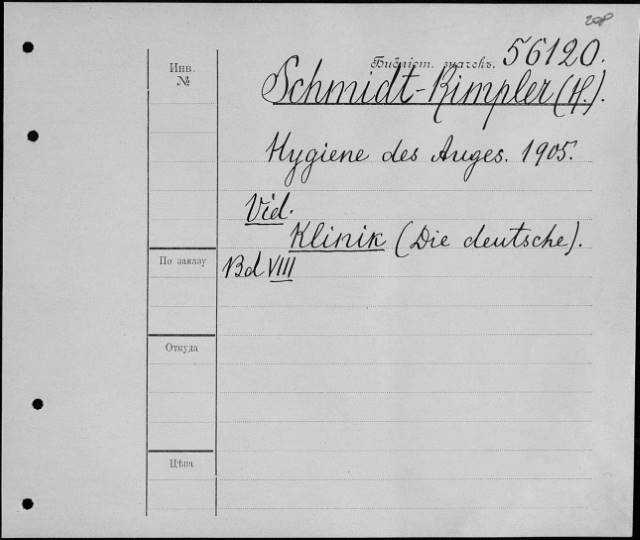 Инв. №
Библіот. значекъ. 56120.
Schmidt-Rimpler (H.).
Hygiene des Auges. 1905.
Vid.
Klinik (Die deutsche).
По заказу
Bd VIII
Откуда
Цѣна